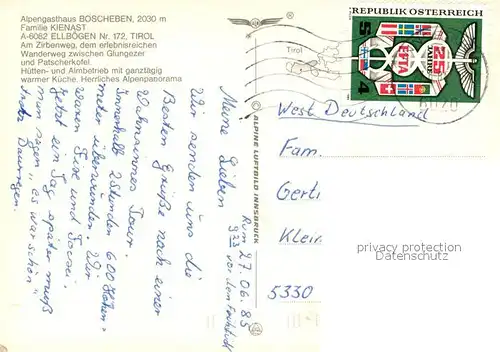 Alpengasthaus BOSCHEBEN, 2030 m
Familie KIENAST
A-6082 ELLBÖGEN Nr. 172, TIROL
Am Zirbenweg, dem erlebnisreichen
Wanderweg zwischen Glungezer
und Patscherkofel.
Hütten- und Almbetrieb mit ganztägig
warmer Küche. Herrliches Alpenpanorama
Rum 27.06.85
Meine Lieben
Wir senden uns die
Besten Grüße nach einer
Wahnsinns Tour.
Innerhalb 2 Stunden 600 Höhen-
meter überwunden. Wir
waren Fix und
Jetzt ein Tag später muß
man sagen „es war schön"
© ALPINE LUFTBILD INNSBRUCK
Tirol
REPUBLIK ÖSTERREICH
25 JAHRE
EFTA
S 4
6020
West Deutschland
Fam.
Gerti
Klein
5330
privacy protection
Datenschutz